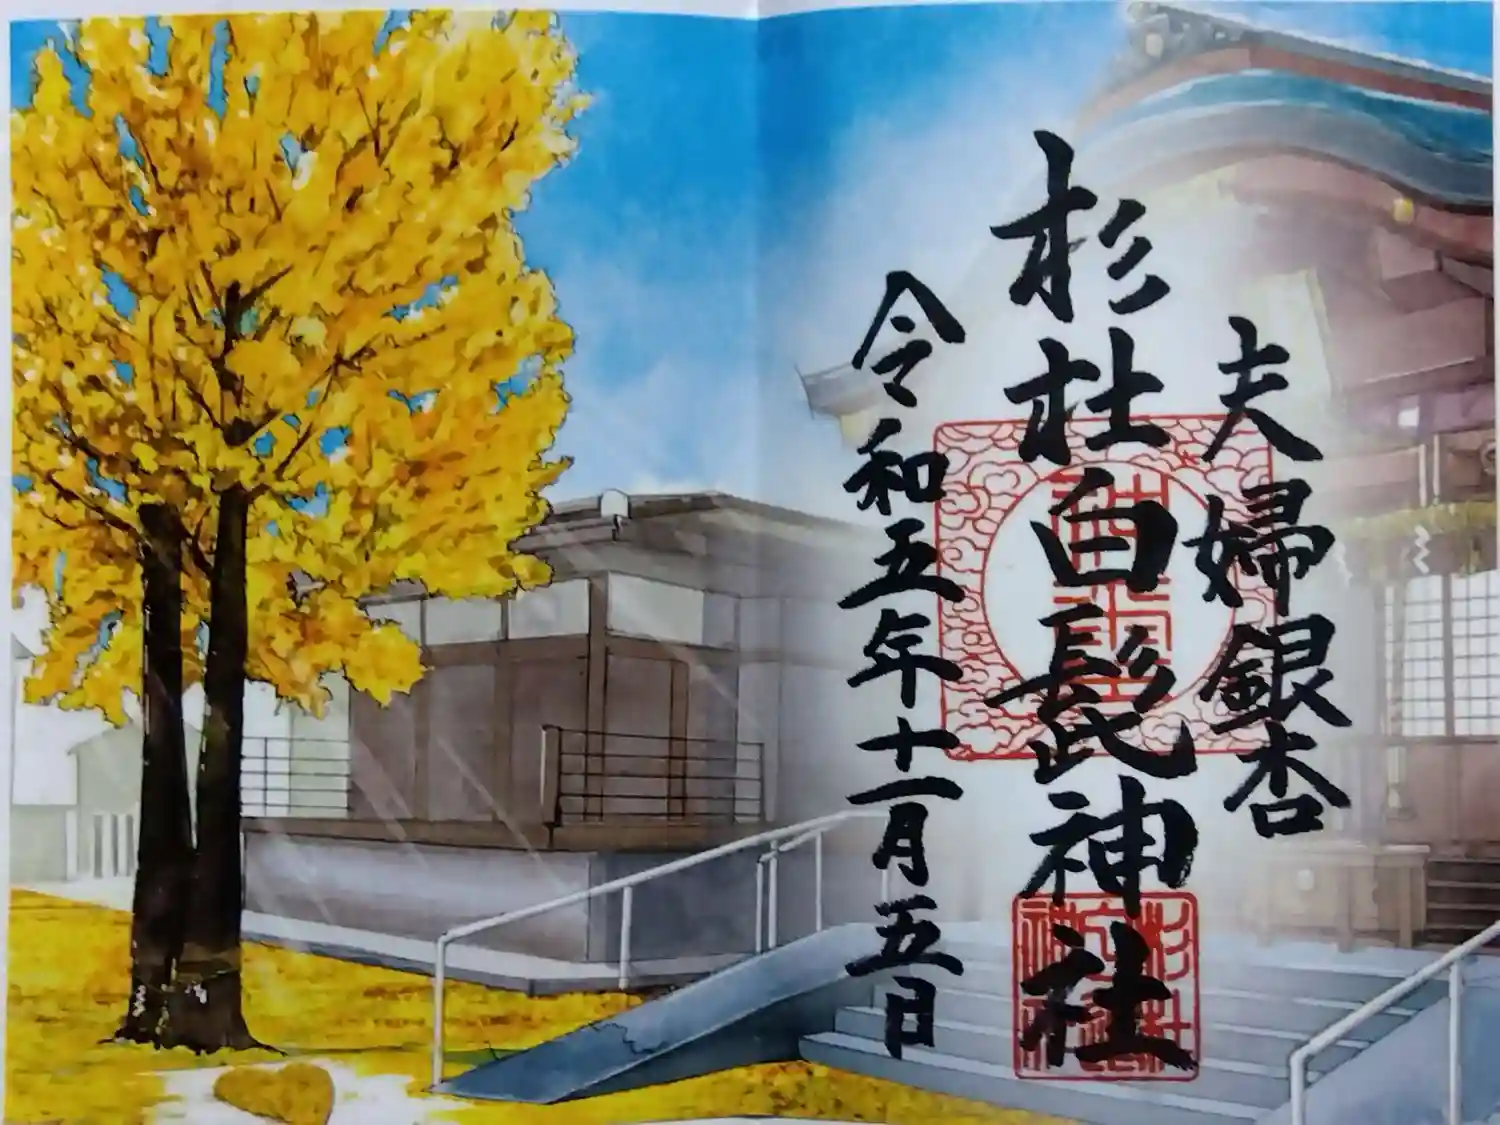 夫婦銀杏
杉杜白髭神社
令和五年十一月五日